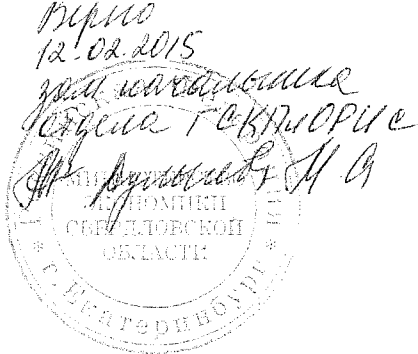 Верно
12.02.2015
зам начальника
отдела
МИНИСТЕРСТВО
ЭКОНОМИКИ
СВЕРДЛОВСКОЙ
ОБЛАСТИ
* г. Екатеринбург *